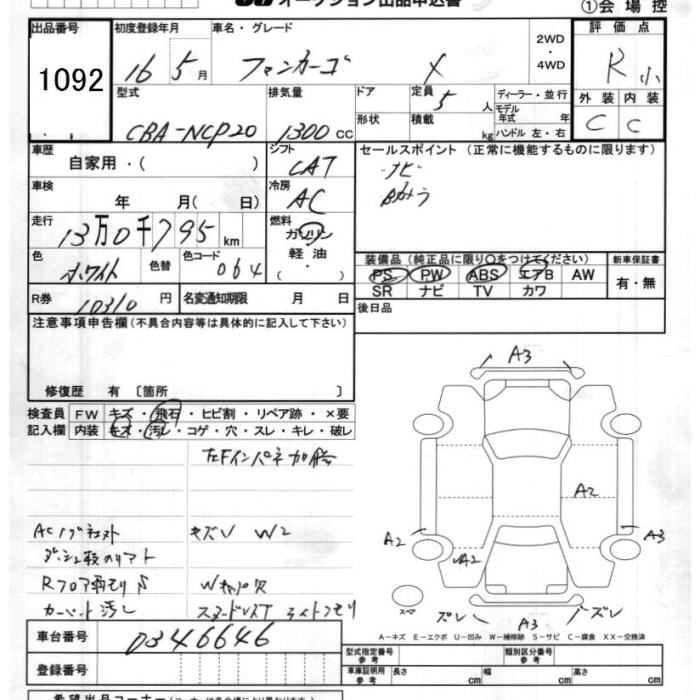 オークション出品申込書
①会場控
出品番号 初度登録年月 車名・グレード 2WD・4WD 評価点
1092 16年 5月 ファンカーゴ X R 小
型式 排気量 ドア 定員 ディーラー・並行 外装 内装
CBA-NCP20 1300 CC 5人 モデル年式 年 C C
形状 積載 kg ハンドル 左・右
車歴 シフト セールスポイント (正常に機能するものに限ります)
自家用・( ) CAT ナビ
車検 冷房 Bカメラ
年 月( 日) AC
走行 燃料
13万0千795km ガソリン
色 色替 色コード 軽油 装備品 (純正品に限り○をつけてください) 新車保証書
ホワイト 064 ・ PS PW ABS エアB AW 有・無
SR ナビ TV カワ
R券 10310円 名変通知期限 月 日 後日品
注意事項申告欄 (不具合内容等は具体的に記入して下さい)
修復歴 有 〔箇所 〕
検査員 FW キズ・飛石・ヒビ割・リペア跡・×要
記入欄 内装 キズ・汚レ・コゲ・穴・スレ・キレ・破レ
左Fインパネ加修
キズU W2
Rフロア雨モリ
カーペット汚し
A3
A2
A2 A3
A2
スペア ズレ A3 ズレ
A-キズ E-エクボ U-凹み W-補修跡 S-サビ C-腐食 XX-交換済
車台番号 0346646
型式指定番号 参考 類別区分番号 参考
登録番号 車庫証明用 参考 長さ cm 幅 cm 高さ cm
希望出品コーナー